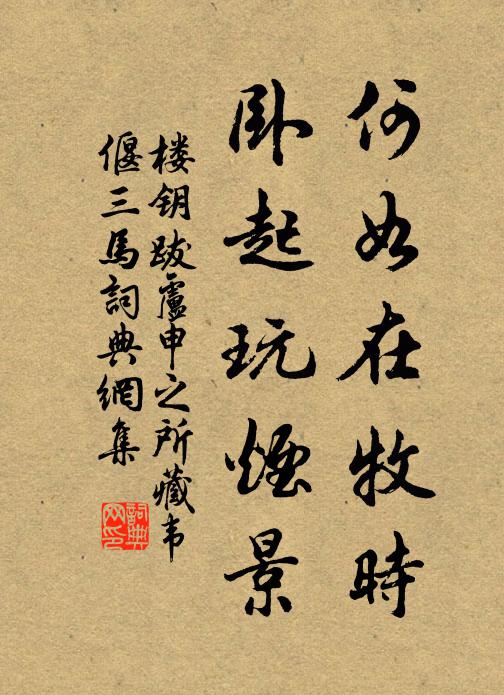 何如在牧時
卧起玩煙景
楼钥跋盧申之所藏韦
偃三馬詞典網集
詞典网印